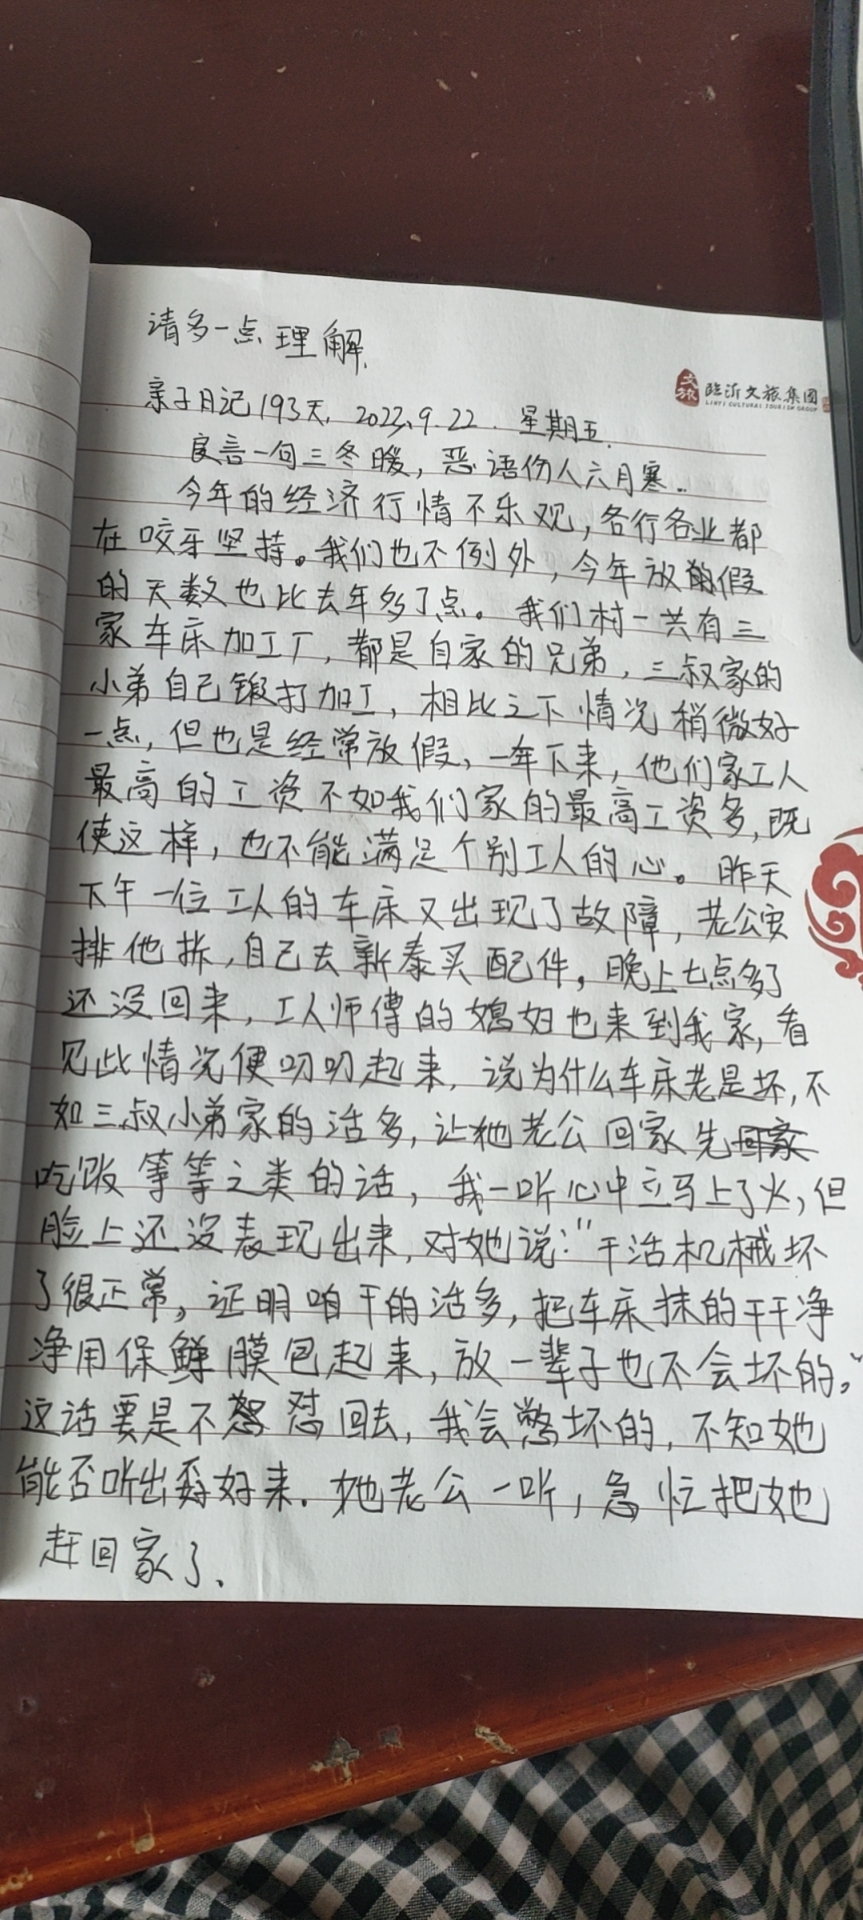 请多一点理解.
文旅 临沂文旅集团
LINYI CULTURAL TOURISM GROUP
亲子日记193天, 2023.9.22. 星期五.
良言一句三冬暖, 恶语伤人六月寒..
今年的经济行情不乐观, 各行各业都
在咬牙坚持。我们也不例外, 今年放的假
的天数也比去年多了点。我们村一共有三
家车床加工厂, 都是自家的兄弟, 三叔家的
小弟自己锻打加工, 相比之下情况稍微好
一点, 但也是经常放假, 一年下来, 他们家工人
最高的工资不如我们家的最高工资多, 既
使这样, 也不能满足个别工人的心。昨天
下午一位工人的车床又出现了故障, 老公安
排他拆, 自己去新泰买配件, 晚上七点多了
还没回来, 工人师傅的媳妇也来到我家, 看
见此情况便叨叨起来, 说为什么车床老是坏, 不
如三叔小弟家的活多, 让她老公回家先
吃饭等等之类的话, 我一听心中立马上了火, 但
脸上还没表现出来, 对她说:"干活机械坏
了很正常, 证明咱干的活多, 把车床抹的干干净
净用保鲜膜包起来, 放一辈子也不会坏的。"
这话要是不怼回去, 我会憋坏的, 不知她
能否听出孬好来. 她老公一听, 急忙把她
赶回家了.